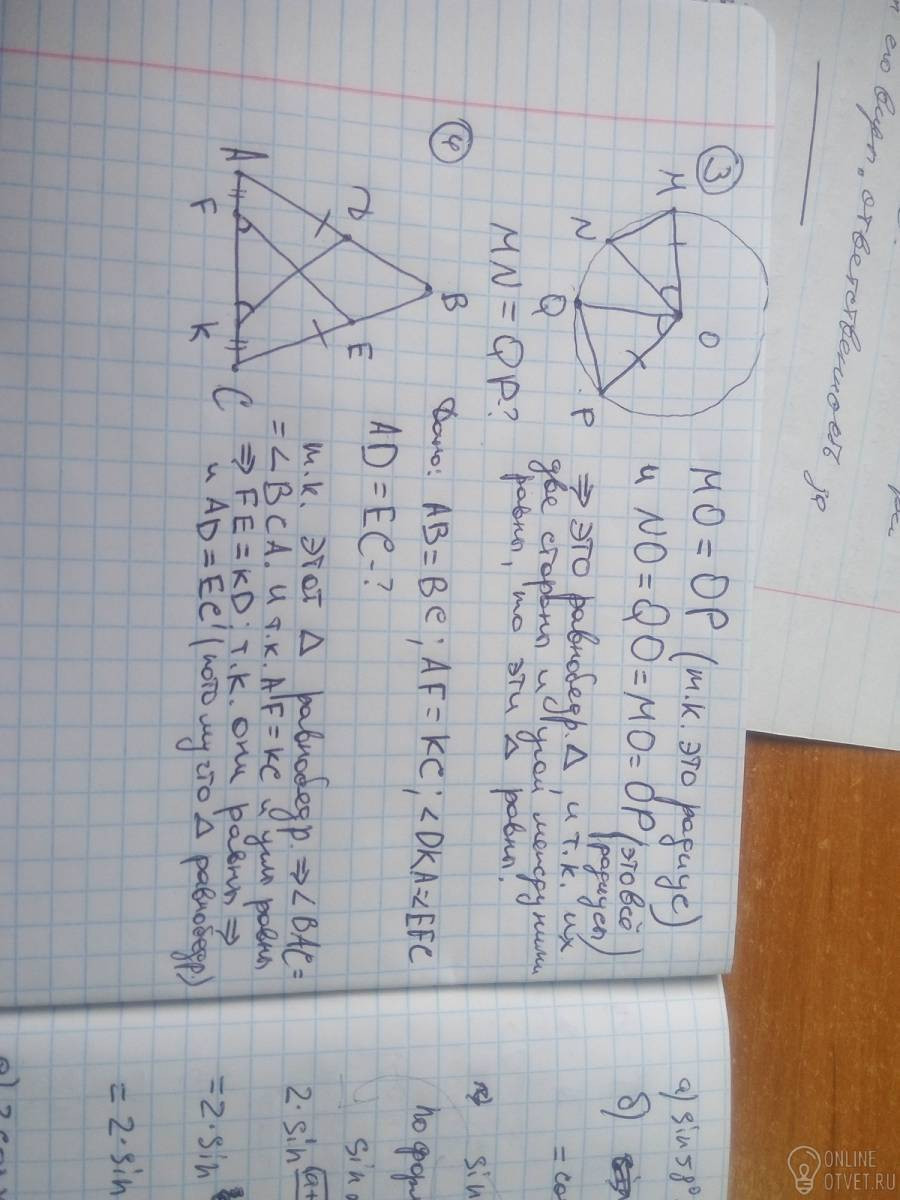 3
M
N
Q
P
O
MN = QP-?
MO = OP (т.к. это радиус)
и NO = QO = MO = OP (это всё
радиусы)
⇒ это равнобедр. Δ, и т.к. их
две стороны и угол между ними
равны, то эти Δ равны.
4
A
F
K
C
D
E
B
Дано: AB = BC; AF = KC; <DKA = <EFC
AD = EC-?
т.к. этот Δ равнобедр. ⇒ <BAC =
= <BCA. и т.к. AF = KC и углы равны
⇒ FE = KD; т.к. они равны ⇒
и AD = EC (потому что Δ равнобедр.)
его
ответственность за
а) sin 58°
б)
= co
sin
по фор
sin
2·sin
= 2·sin
= 2·sin
ONLINE
OTVET.RU